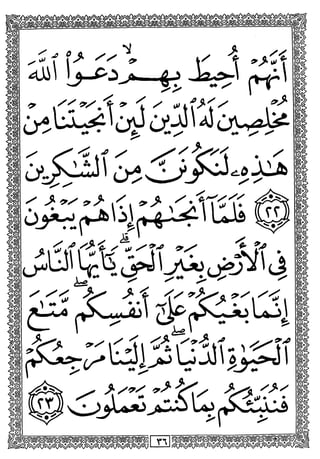 أَنَّهُمۡ أُحِيطَ بِهِمۡۙ دَعَوُاْ ٱللَّهَ
مُخۡلِصِينَ لَهُ ٱلدِّينَ لَئِنۡ أَنجَيۡتَنَا مِنۡ
هَٰذِهِۦ لَنَكُونَنَّ مِنَ ٱلشَّٰكِرِينَ
٢٢ فَلَمَّآ أَنجَىٰهُمۡ إِذَا هُمۡ يَبۡغُونَ
فِي ٱلۡأَرۡضِ بِغَيۡرِ ٱلۡحَقِّۗ يَٰٓأَيُّهَا ٱلنَّاسُ
إِنَّمَا بَغۡيُكُمۡ عَلَىٰٓ أَنفُسِكُمۖ مَّتَٰعَ
ٱلۡحَيَوٰةِ ٱلدُّنۡيَاۖ ثُمَّ إِلَيۡنَا مَرۡجِعُكُمۡ
فَنُنَبِّئُكُم بِمَا كُنتُمۡ تَعۡمَلُونَ ٢٣
٣٦